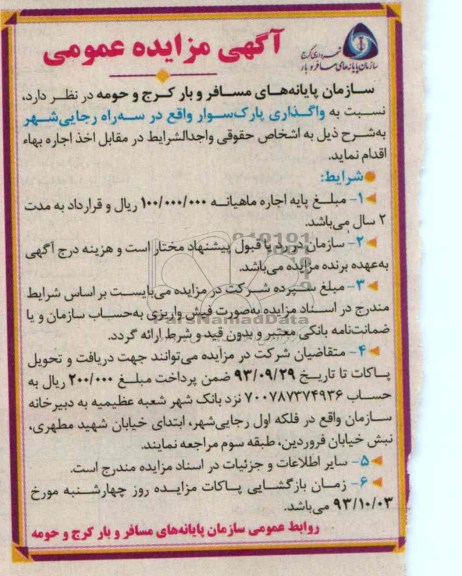 شهرداری کرج
سازمان پایانه‌های مسافر و بار
آگهی مزایده عمومی
سازمان پایانه‌های مسافر و بار کرج و حومه در نظر دارد،
نسبت به واگذاری پارک‌سوار واقع در سه‌راه رجایی‌شهر
به‌شرح ذیل به اشخاص حقوقی واجدالشرایط در مقابل اخذ اجاره بهاء
اقدام نماید.
شرایط:
۱- مبلغ پایه اجاره ماهیانه ۱۰۰/۰۰۰/۰۰۰ ریال و قرارداد به مدت
۲ سال می‌باشد.
۲- سازمان در رد یا قبول پیشنهاد مختار است و هزینه درج آگهی
به‌عهده برنده مزایده می‌باشد.
۳- مبلغ سپرده شرکت در مزایده می‌بایست بر اساس شرایط
مندرج در اسناد مزایده به‌صورت فیش واریزی به‌حساب سازمان و یا
ضمانت‌نامه بانکی معتبر و بدون قید و شرط ارائه گردد.
ParsNamadData
۴- متقاضیان شرکت در مزایده می‌توانند جهت دریافت و تحویل
پاکات تا تاریخ ۹۳/۰۹/۲۹ ضمن پرداخت مبلغ ۲۰۰/۰۰۰ ریال به
حساب ۷۰۰۷۸۷۳۷۴۹۳۶ نزد بانک شهر شعبه عظیمیه به دبیرخانه
سازمان واقع در فلکه اول رجایی‌شهر، ابتدای خیابان شهید مطهری،
نبش خیابان فروردین، طبقه سوم مراجعه نمایند.
۵- سایر اطلاعات و جزئیات در اسناد مزایده مندرج است.
۶- زمان بازگشایی پاکات مزایده روز چهارشنبه مورخ
۹۳/۱۰/۰۳ می‌باشد.
روابط عمومی سازمان پایانه‌های مسافر و بار کرج و حومه